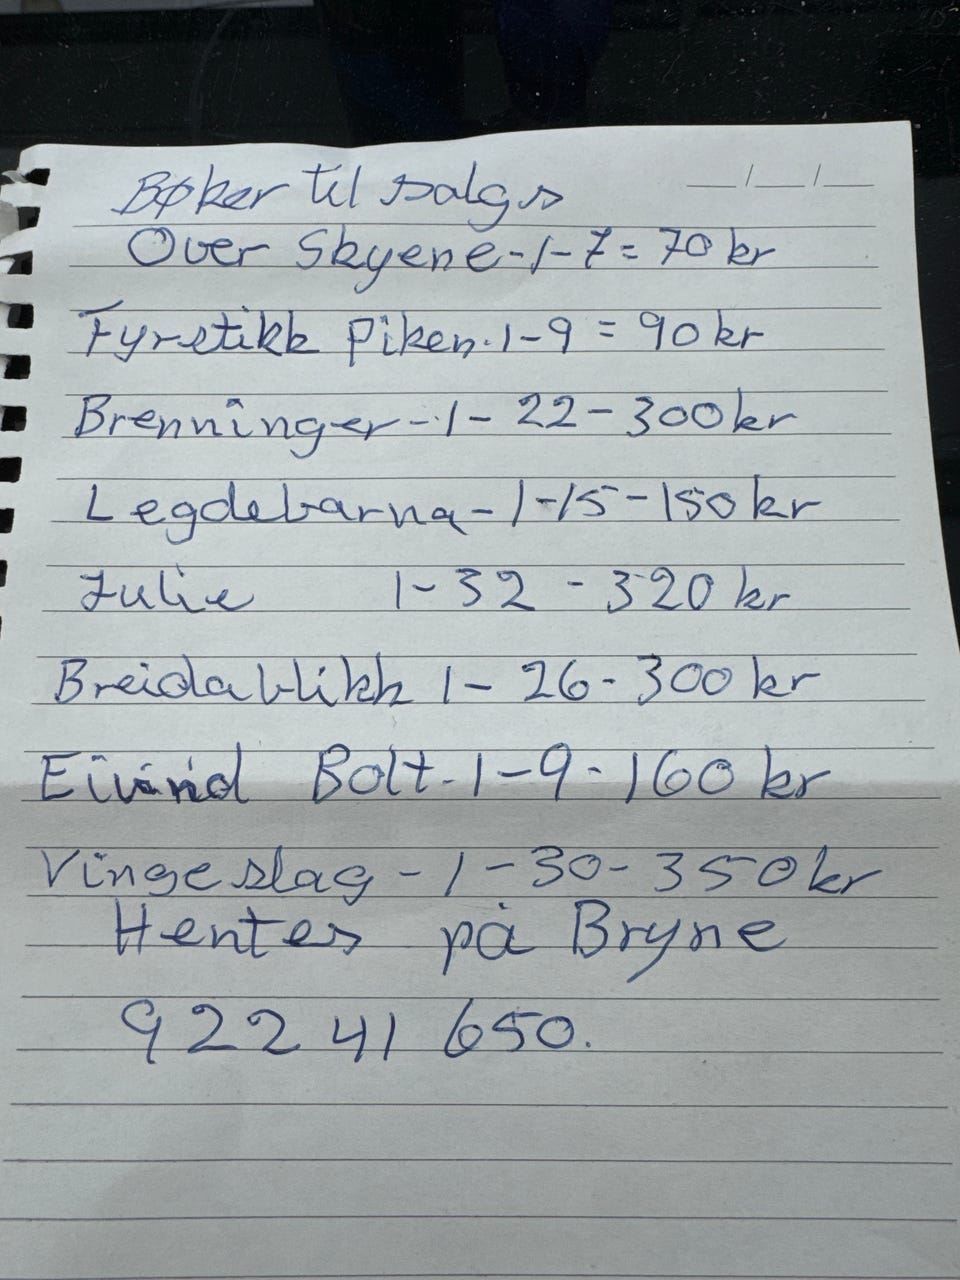 Bøker til salgs
Over Skyene-1-7= 70 kr
Fyrstikk Piken.1-9 = 90 kr
Brenninger-1- 22-300kr
Legdebarna-1-15-150kr
Julie 1-32 -320 kr
Breidablikk 1- 26-300 kr
Eivind Bolt.1-9-160 kr
Vingeslag-1-30-350kr
Hentes på Bryne
922 41 650.